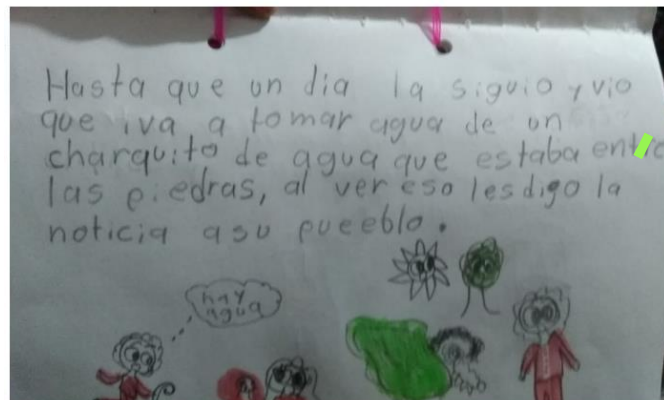 Hasta que un dia la siguio y vio
que iva a tomar agua de un
charquito de agua que estaba entre
las piedras, al ver eso les digo la
noticia asu pueeblo.
hay
agua